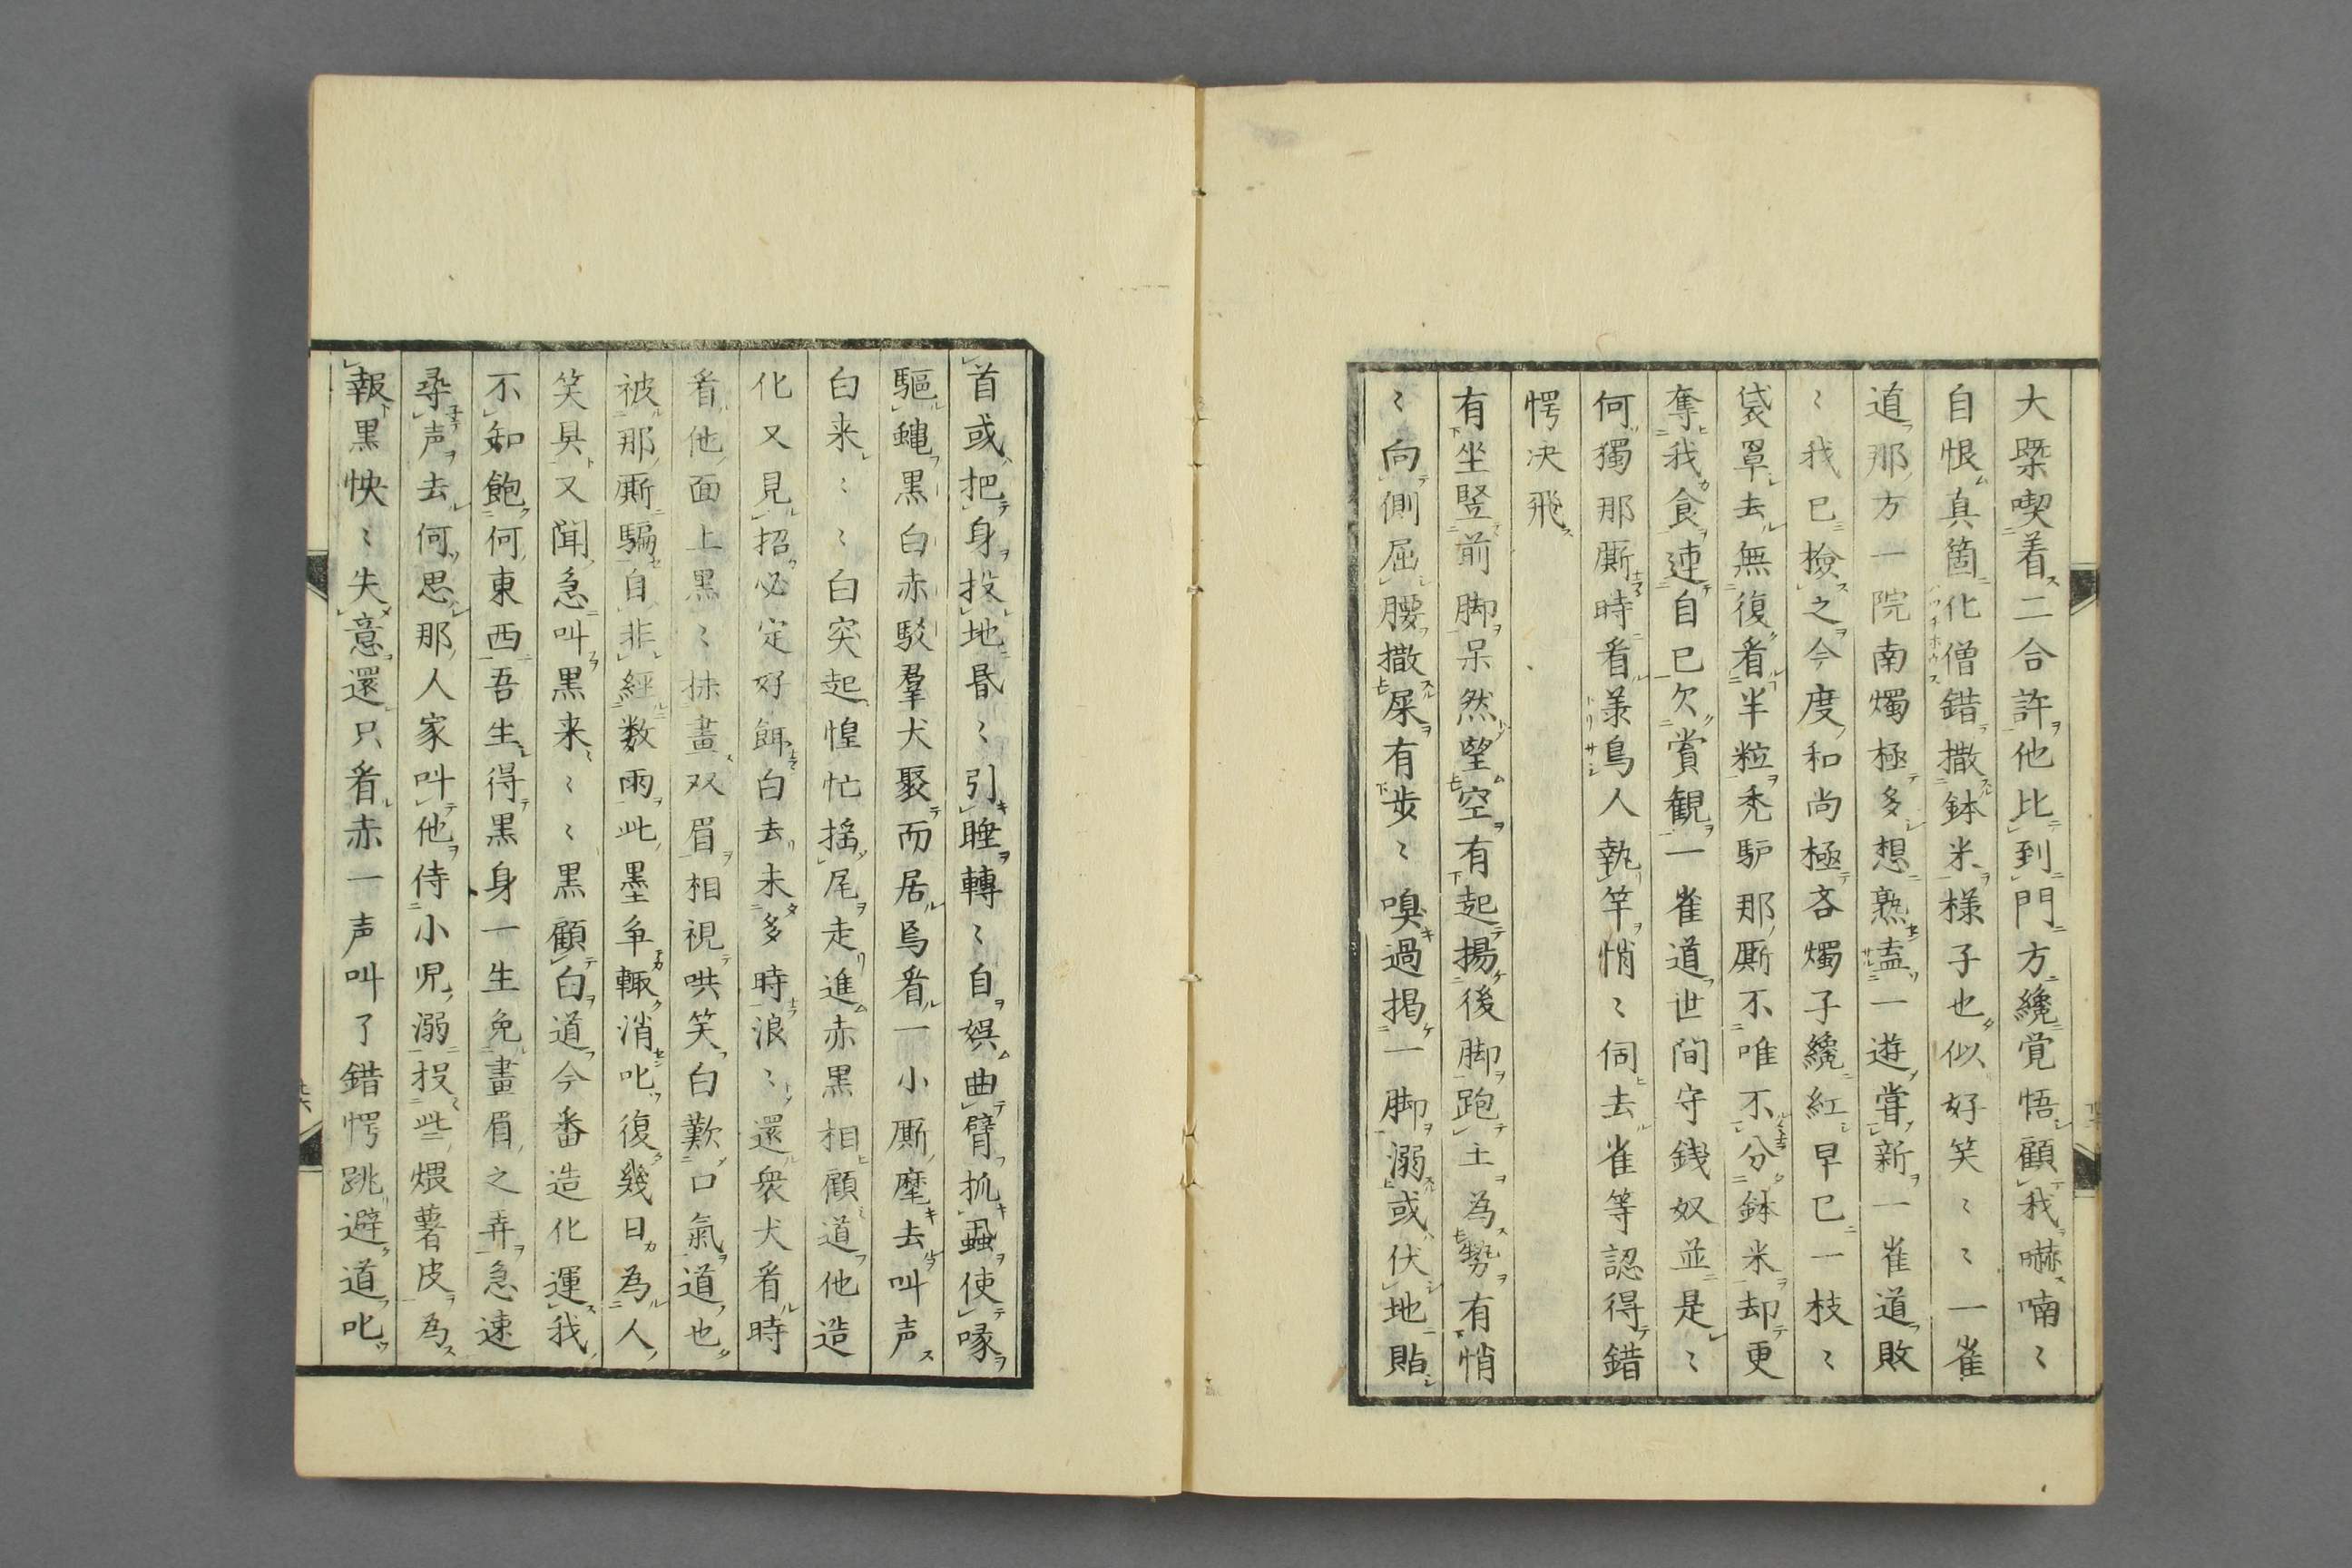 大槩喫着二合許他比到門方纔覚悟顧我嚇喃〻
自恨真箇化僧錯撒鉢米様子也似好笑〻〻一雀
道那方一院南燭極多想熟盍一遊嘗新一雀道敗
〻我已撿之今度和尚極吝燭子纔紅早已一枝〻
袋罩去無復看半粒禿驴那厮不唯不分鉢米却更
奪我食迚自已欠賞観一雀道世间守銭奴並是〻
何獨那厮時看羕鳥人執竿悄〻伺去雀等認得錯
愕决飛
有坐竪前脚呆然望空有起揚後脚跑土為勢有悄
〻向側屈腰撒屎有步〻嗅過掲一脚溺或伏地貼
首或把身投地昬〻引睡轉〻自娯曲臂抓蝨使喙
驅蠅黒白赤駁羣犬聚而居烏看一小厮麾去叫声
白来〻〻白突起惶忙揺尾走進赤黒相顧道他造
化又見招必定好餌白去未多時浪〻還衆犬看時
看他面上黒〻抹畫双眉相視哄笑白歎口氣道也
被那厮騙自非經数雨此墨争輙消叱復幾日為人
笑具又聞急叫黒来〻〻黒顧白道今番造化運我
不知飽何東西吾生得黒身一生免畫眉之弄急速
尋声去何思那人家叫他侍小児溺投些煨薯皮為
報黒怏〻失意還只看赤一声叫了錯愕跳避道叱